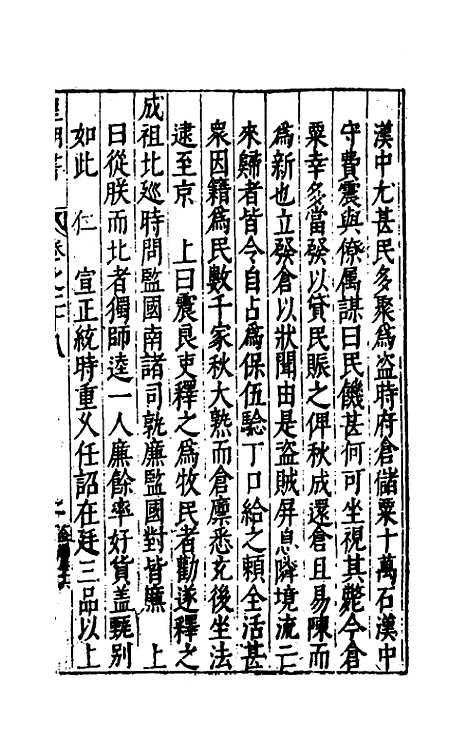 漢中尤甚民多聚為盜時府倉儲粟十萬石漢中
守費震與僚属謀曰民饑甚何可坐視其斃今倉
粟幸多當發以貸民賑之俾秋成還倉且易陳而
為新也立發倉以狀聞由是盜賊屏息隣境流亡
來歸者皆令自占為保伍驗丁口給之頼全活甚
衆因籍為民數千家秋大熟而倉廪悉充後坐法
逮至京 上曰震良吏釋之為牧民者勸遂釋之
成祖北廵時問監國南諸司孰廉監國對皆廉 上
曰從朕而北者獨師逵一人廉餘率好貨盖甄别
如此 仁 宣正統時重乂任詔在廷三品以上
皇明書 卷之二十八